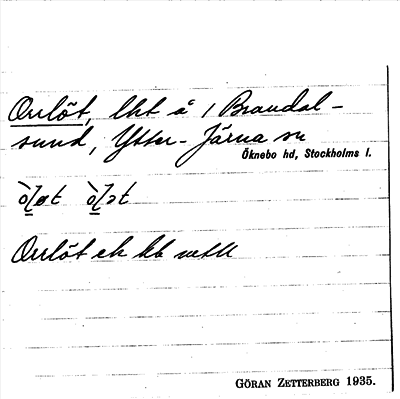 Orrlöt, lht å / Brandal-
sund, Ytter-Järna sn
Öknebo hd, Stockholms l.
Orrlöt ek kb
GÖRAN ZETTERBERG 1935.